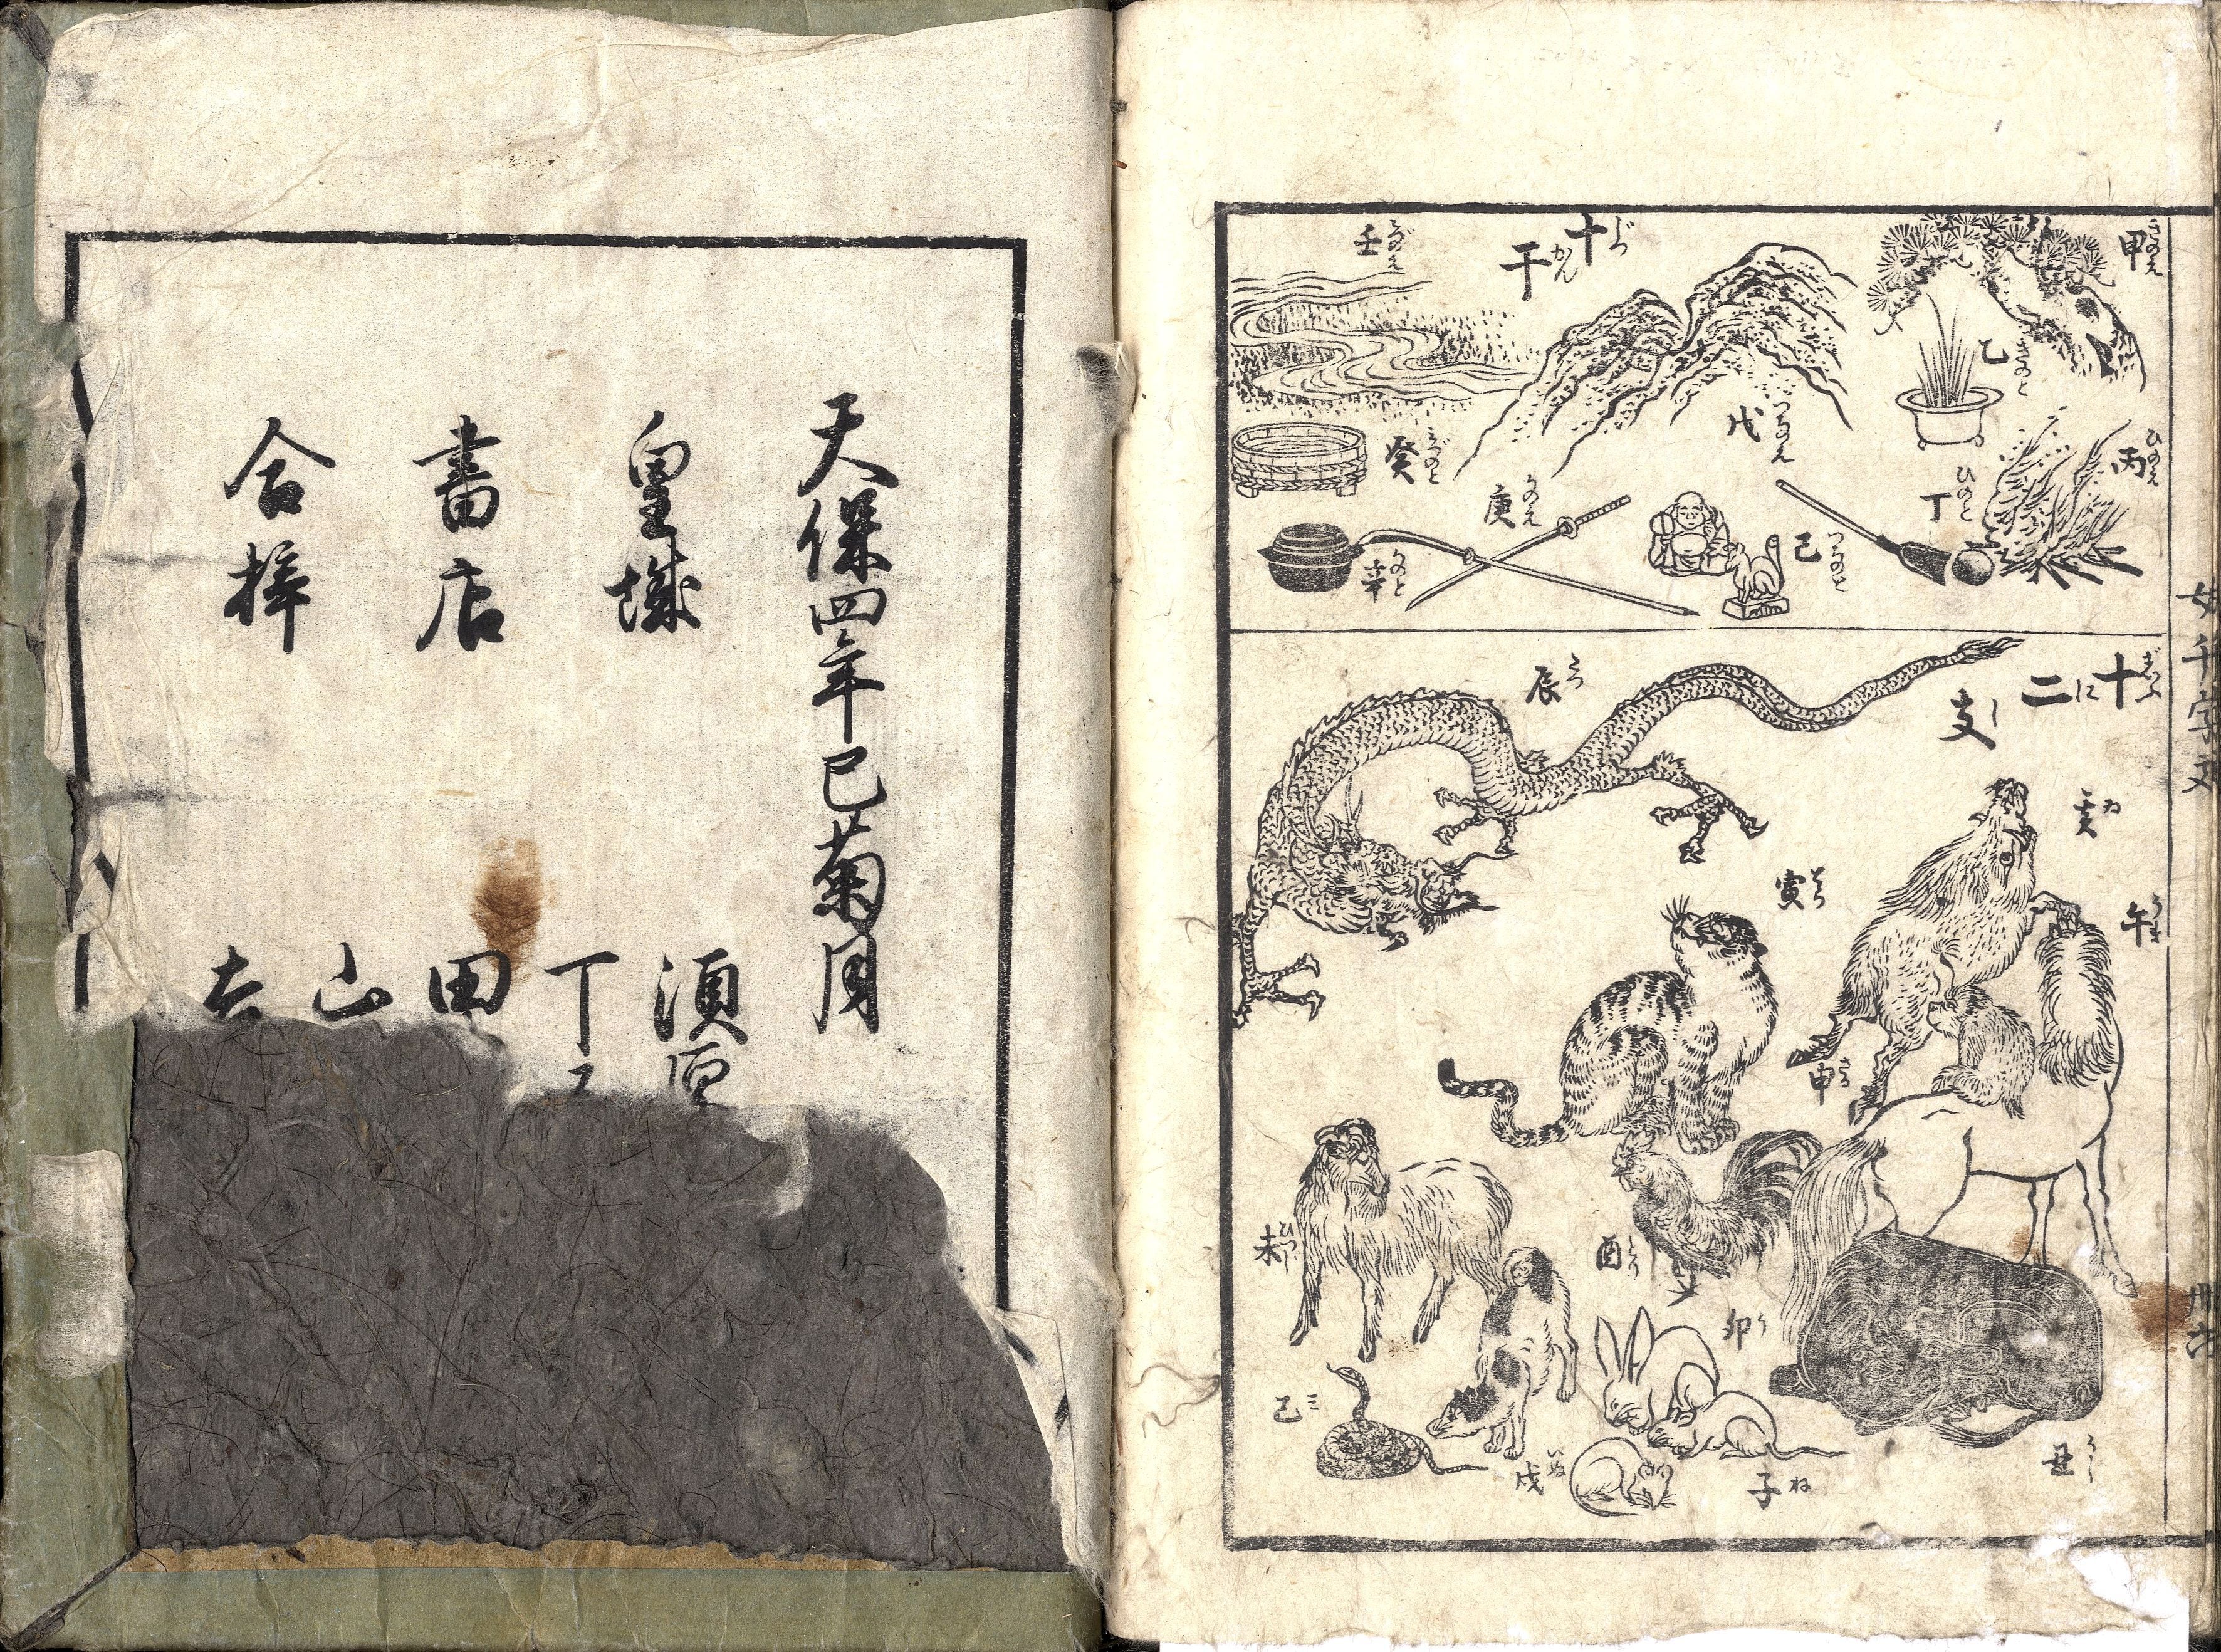 女千字文
卅六
甲 きのえ
乙 きのと
丙 ひのえ
丁 ひのと
十干 じつかん
戊 つちのえ
己 つちのと
庚 かのえ
辛 かのと
壬 みづのえ
癸 みづのと
十二支 じふにし
亥 ゐ
午 うま
辰 たつ
寅 とら
申 さる
酉 とり
未 ひつじ
卯 う
丑 うし
子 ね
戌 いぬ
巳 ミ
天保四年巳菊月
皇城
書店
合梓
須原
丁子
田
山
吉